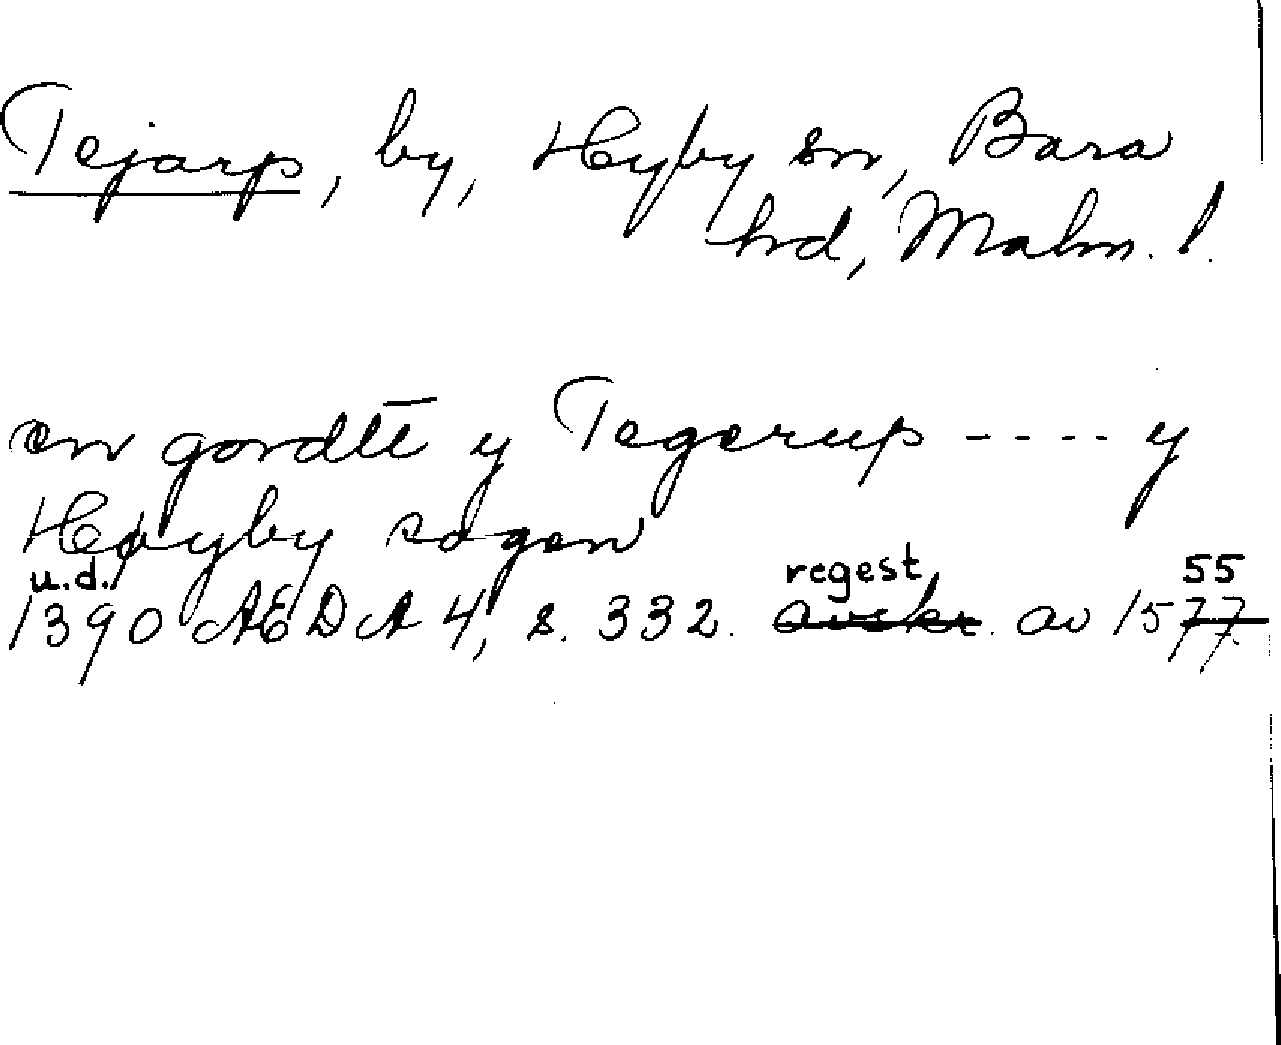 Tejarp, by, Hyby sn, Bara
hd, Malm. l.
en gordtē y Tegerup ---- y
Høyby sogen
u.d. regest, 55
1390 ÆDA 4, s. 332. avskr. av 1577